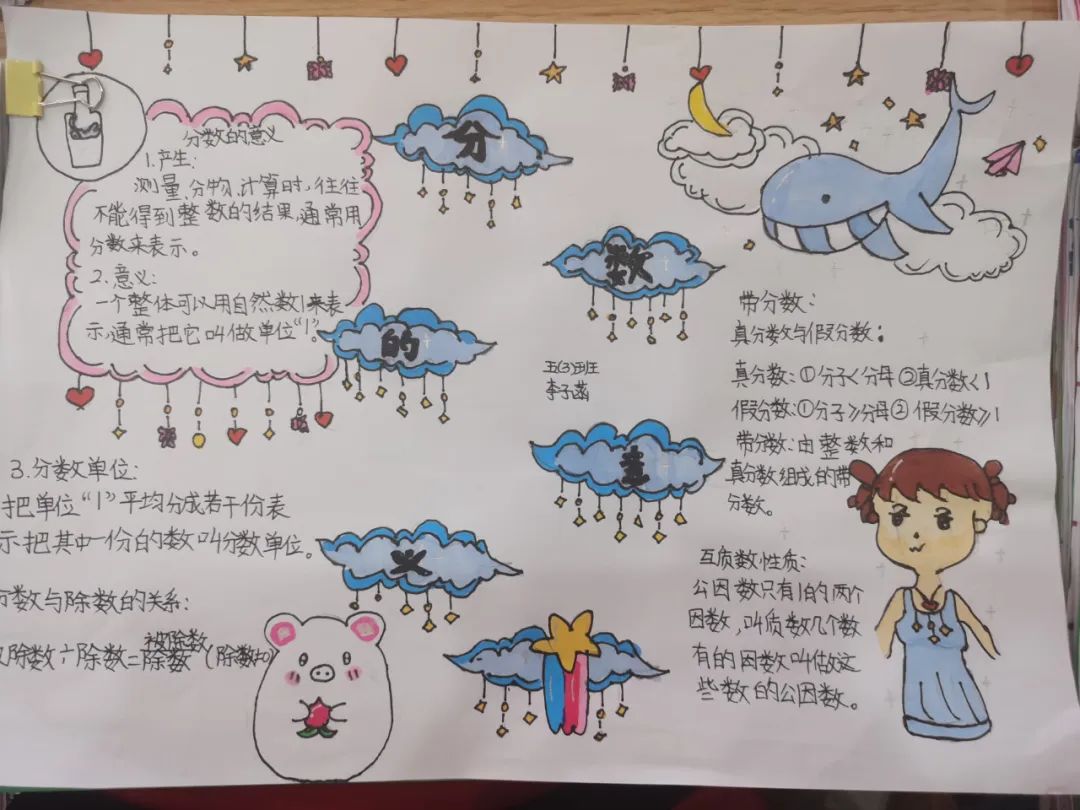 分数的意义
1.产生:
测量,分物,计算时,往往
不能得到整数的结果,通常用
分数来表示。
2.意义:
一个整体可以用自然数1来表
示,通常把它叫做单位“1”。
3.分数单位:
把单位“1”平均分成若干份表
示把其中一份的数叫分数单位。
分数与除数的关系:
除数÷除数=被除数/除数 (除数≠0)
分
数
的
意
义
五(3)班
李子涵
带分数:
真分数与假分数:
真分数:①分子<分母②真分数<1
假分数:①分子≥分母② 假分数≥1
带分数:由整数和
真分数组成的带
分数。
互质数性质:
公因数只有1的两个
因数,叫质数几个数
有的因数叫做这
些数的公因数。